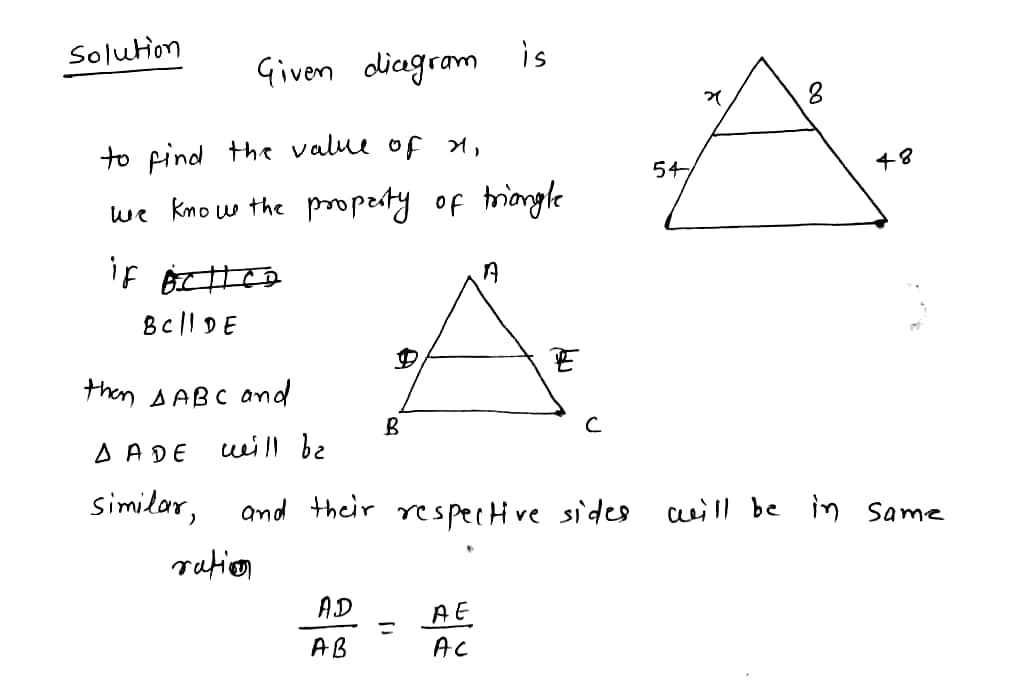 Solution
Given diagram is
x 8
to find the value of x,
54 48
we know the property of triangle
if
BC||DE
A
D E
then △ABC and
B C
△ ADE will be
similar, and their respective sides will be in same
ration
AD = AE
AB AC